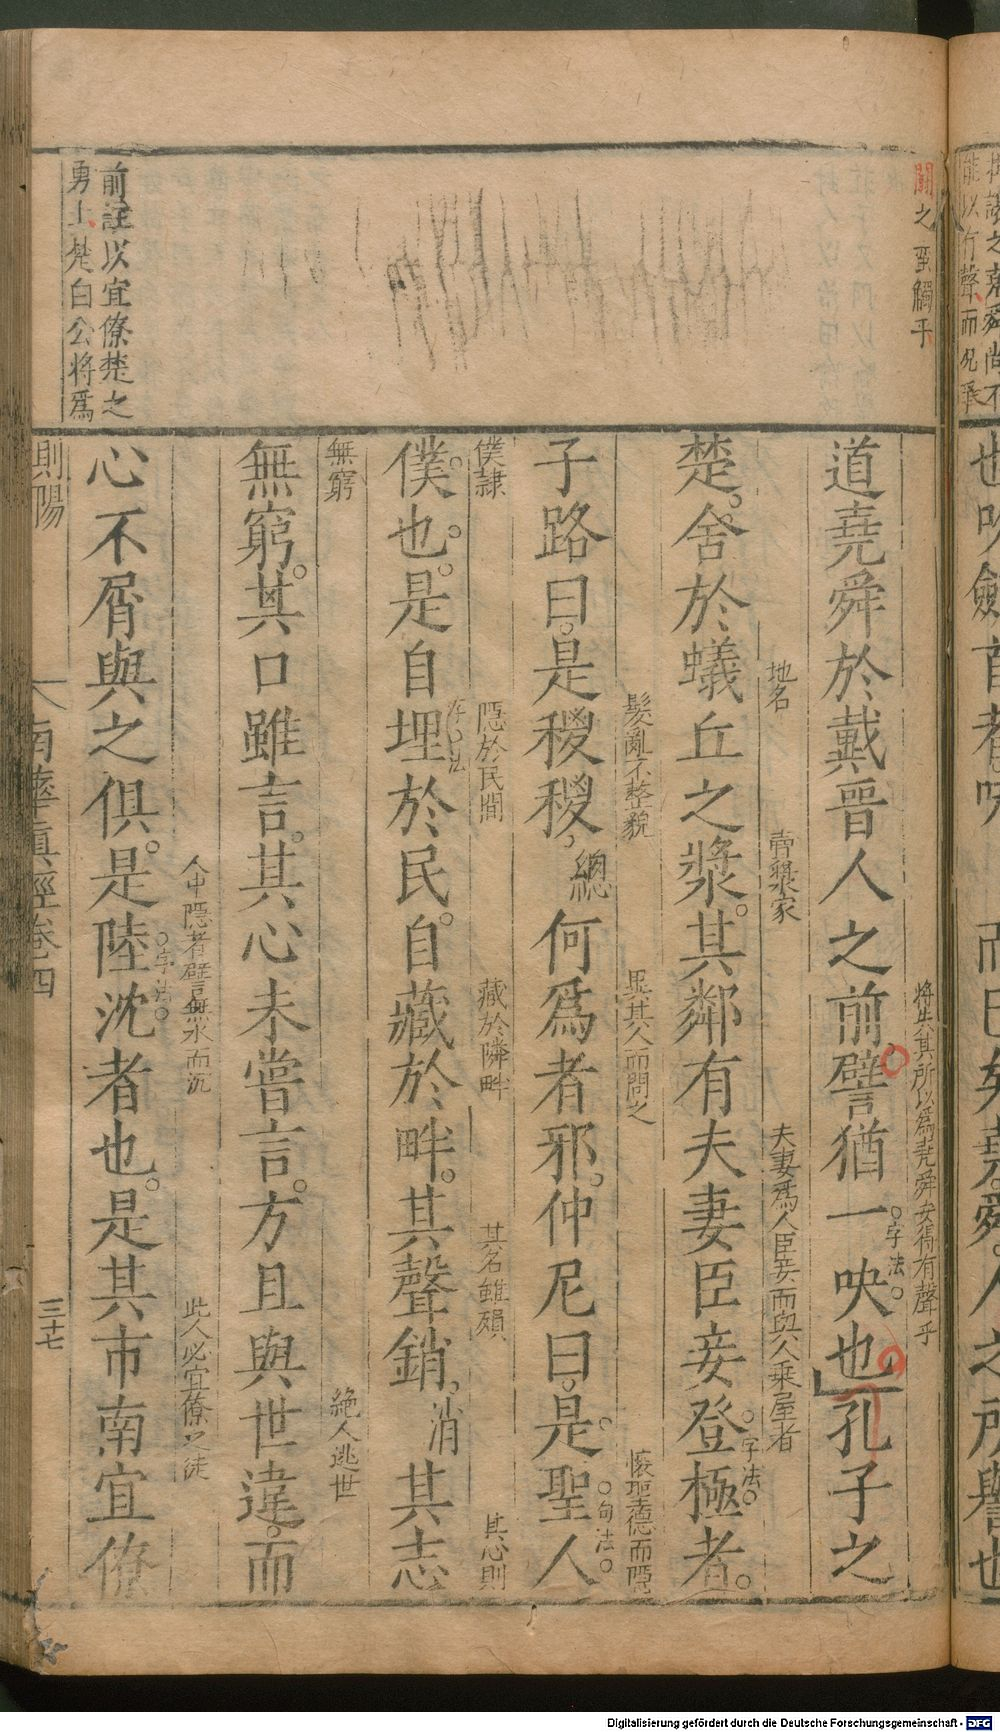 闘之蛮觸乎
前註以宜僚楚之
勇士楚白公将爲
將失其所以爲堯舜安得有聲乎
道堯舜於戴晉人之前譬猶一吷也孔子之
字法
地名 賣漿家 夫妻爲人臣妾而與人乗屋者
楚。舍於蟻丘之漿。其鄰有夫妻臣妾登極者。
字法
髮亂不整貌 異其人而問之 懷聖德而隱
子路曰。是稯稯總何爲者邪。仲尼曰。是聖人
句法
僕隸 隱於民間 藏於隣畔 其名雖殞 其心則
僕也。是自埋於民。自藏於畔。其聲銷消其志
字法
無窮 絶人逃世
無窮。其口雖言。其心未嘗言。方且與世違。而
人中隱者譬無水而沉 此人必宜僚之徒
心不屑與之俱。是陸沈者也。是其市南宜僚
字法
則陽 南華真經卷四 三十七
Digitalisierung gefördert durch die Deutsche Forschungsgemeinschaft - DFG